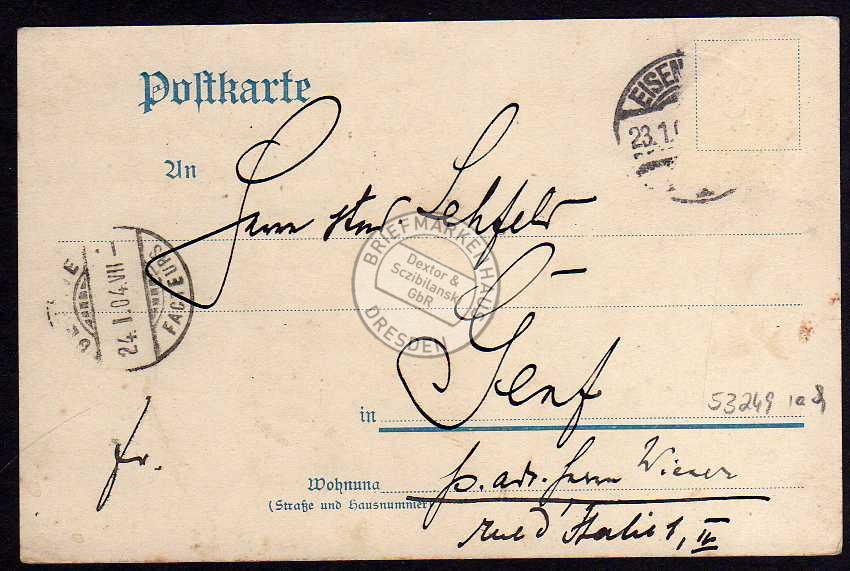 Postkarte
EISEN
23.1.0
An
Herrn stud. Lehfeld
BRIEFMARKENHAUS
Dextor &
Sczibilanski
GbR
DRESDEN
GENÈVE
24.I.04.VII
FACTEURS
Genf
in
53249
fr.
Wohnung
(Straße und Hausnummer)
p. adr. Herrn Wiener
rue d'Italie 1, II